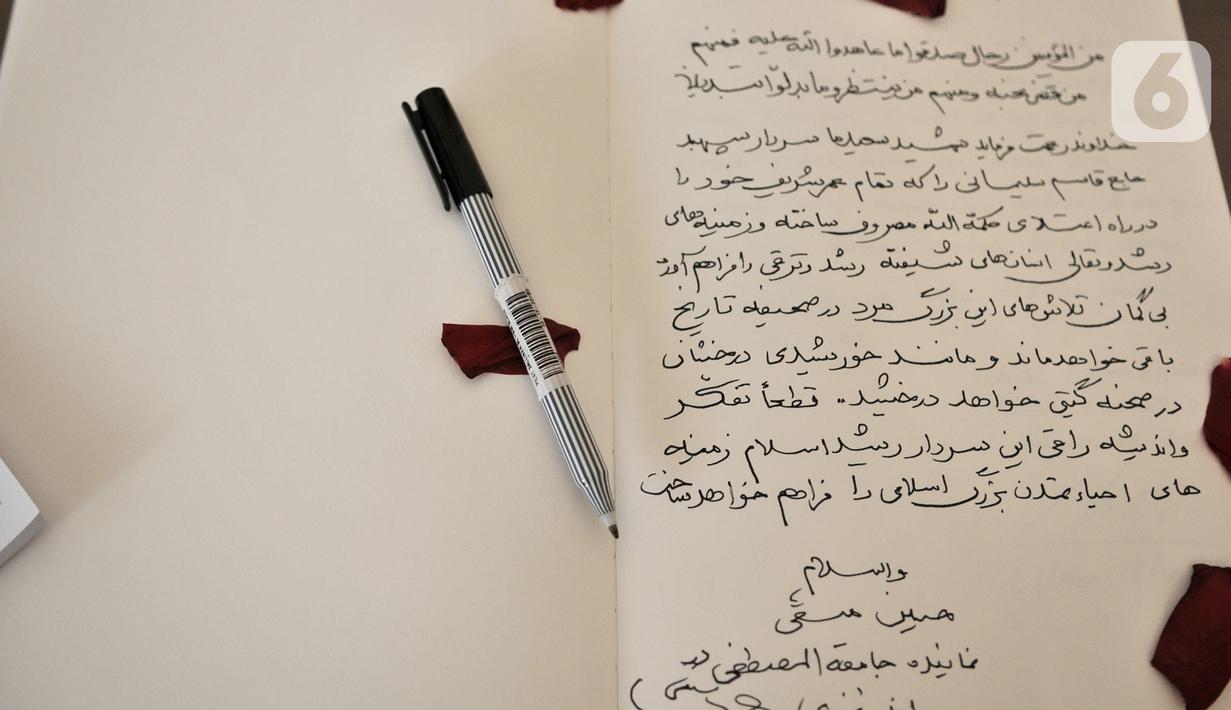 من المؤمنین رجال صدقوا ما عاهدوا الله علیه فمنهم
من قضی نحبه ومنهم من ینتظر وما بدلوا تبدیلا
خداوند رحمت فرماید شهید سعید ما سردار سپهبد
حاج قاسم سلیمانی را که تمام عمر شریف خود را
در راه اعتلای کلمة الله مصروف ساخته و زمینه‌های
رشد و تعالی انسان‌های شیفته رشد و ترقی را فراهم آورد
بی گمان تلاش‌های این بزرگ مرد در صحیفه تاریخ
باقی خواهد ماند و مانند خورشیدی درخشان
در صحنه گیتی خواهد درخشید.. قطعاً تفکر
و اندیشه راقی این سردار رشید اسلام زمینه
های احیاء تمدن بزرگ اسلامی را فراهم خواهد ساخت
والسلام
حسین متقی
نماینده جامعة المصطفی در
6